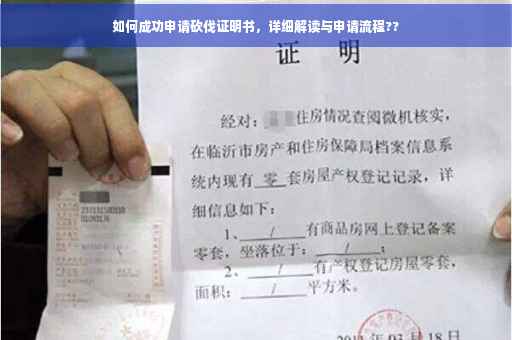 如何成功申请砍伐证明书，详细解读与申请流程??
证 明
经对：住房情况查阅微机核实，
在临沂市房产和住房保障局档案信息系
统内现有 零 套房屋产权登记记录，详
细信息如下：
1、 / 有商品房网上登记备案
零套，坐落位于： / ；
2、 / 有产权登记房屋零套，
面积： / 平方米。
03 月 18 日